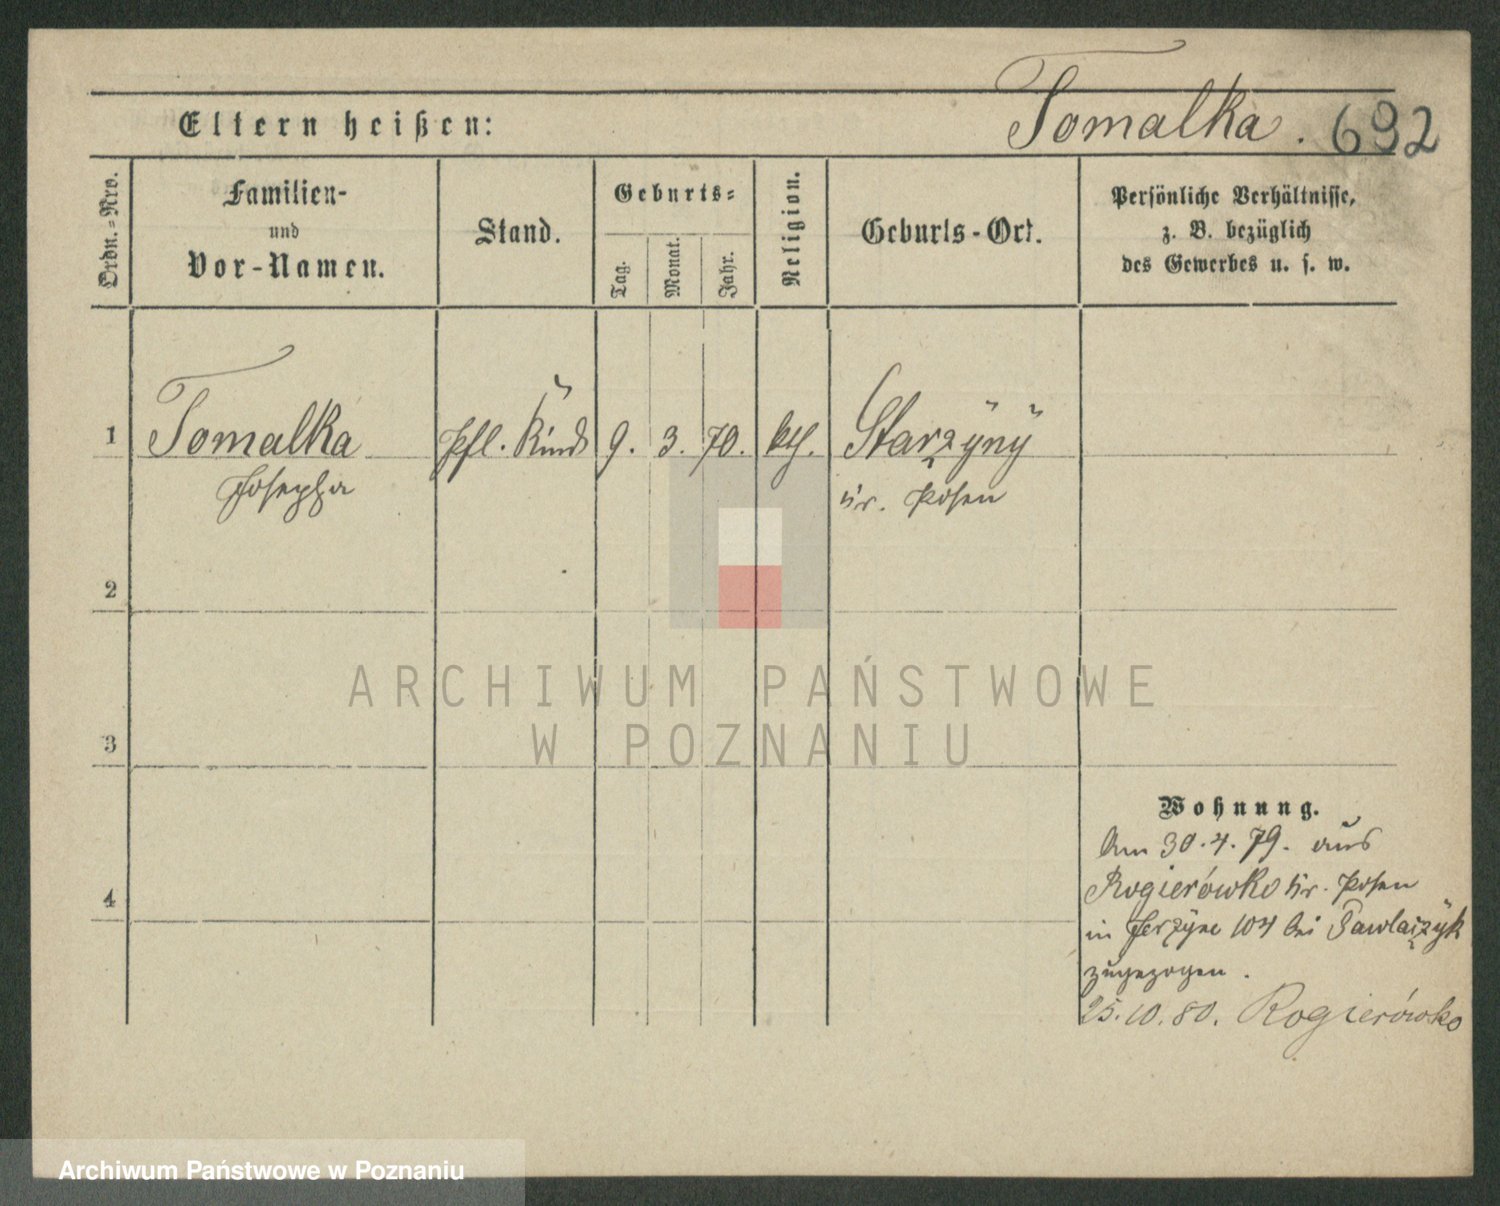 Tomalka. 692
Eltern heißen:
Ordn.-Nro.
Familien-
und
Vor-Namen.
Stand.
Geburts-
Tag.
Monat.
Jahr.
Religion.
Geburts-Ort.
Persönliche Verhältnisse,
z. B. bezüglich
des Gewerbes u. s. w.
1 Tomalka pfl. Kind 9. 3. 70. kth. Starzyny
Josepha Kr. Posen
2
3
4
Wohnung.
Am 30.4.79. aus
Rogierówko Kr. Posen
in Jerzyce 104 bei Pawlaczyk
zugezogen.
25.10.80. Rogierówko
ARCHIWUM PAŃSTWOWE
W POZNANIU
Archiwum Państwowe w Poznaniu